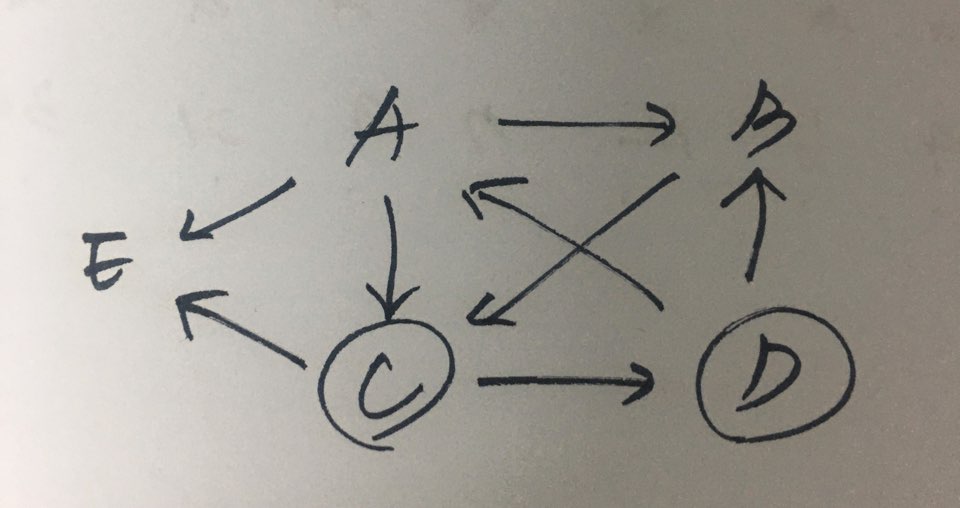 A B
E
C D